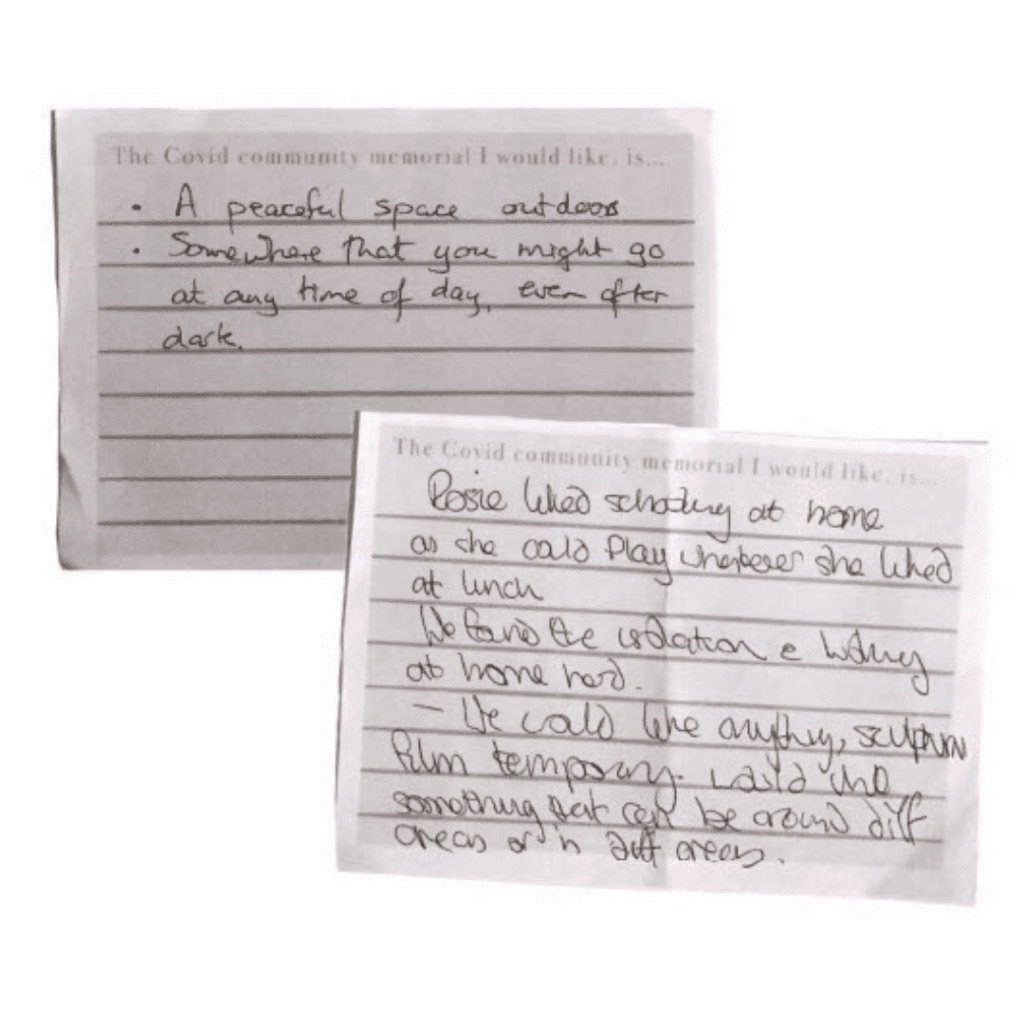 The Covid community memorial I would like, is...
• A peaceful space outdoors
• Somewhere that you might go
at any time of day, even after
dark.
The Covid community memorial I would like, is...
Rosie liked schooling at home
as she could play wherever she liked
at lunch
We found the isolation e
at home hard.
— We would like anything, sculpture
film temporary. would like
something that can be around diff
areas or in diff areas.